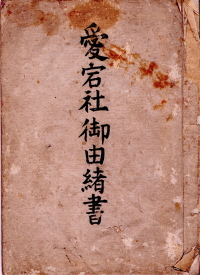 愛宕社御由緒書